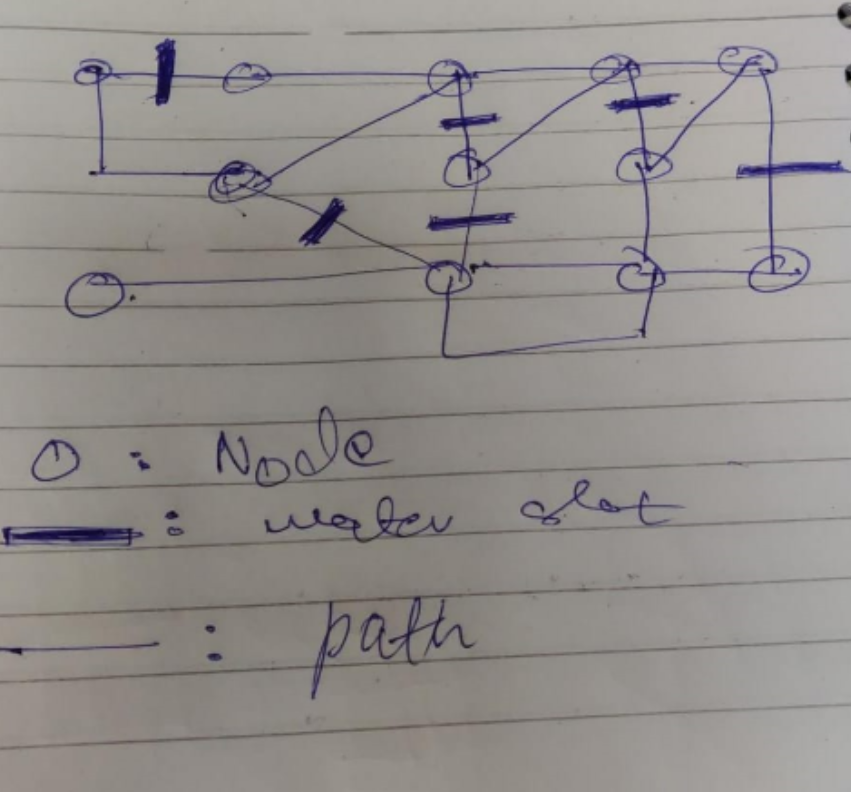 O : Node
: water slot
: path